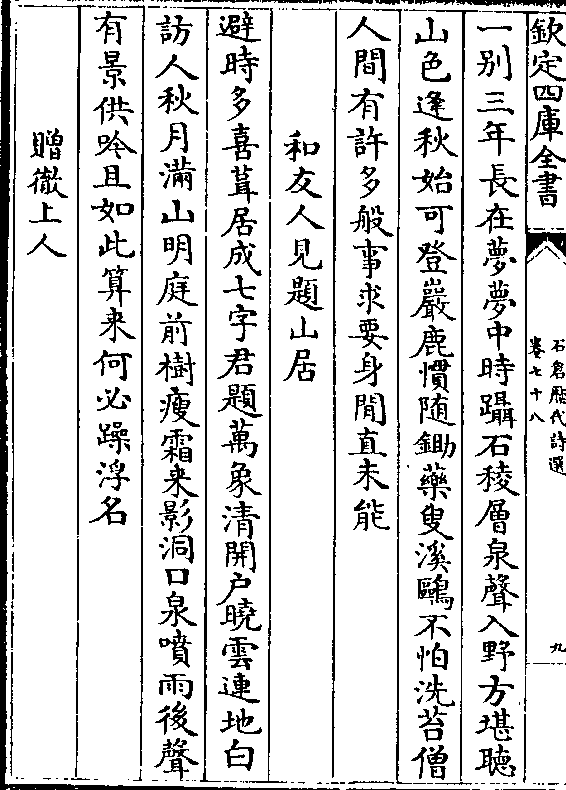 欽定四庫全書
石倉歷代詩選
卷七十八
九
一别三年長在夢夢中時躡石稜層泉聲入野方堪聴
山色逢秋始可登巖鹿慣随鋤藥叟溪鷗不怕洗苔僧
人間有許多般事求要身閒直未能
和友人見題山居
避時多喜葺居成七字君題萬象清開户曉雲連地白
訪人秋月滿山明庭前樹瘦霜来影洞口泉噴雨後聲
有景供吟且如此算来何必躁浮名
贈徹上人